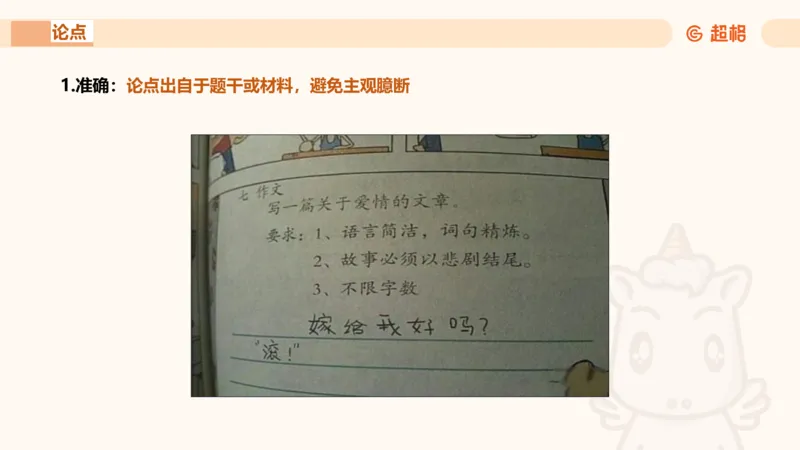 论点
超格
1.准确：论点出自于题干或材料，避免主观臆断
七 作文
写一篇关于爱情的文章。
要求：1、语言简洁，词句精炼。
2、故事必须以悲剧结尾。
3、不限字数
嫁给我好吗？
“滚！”